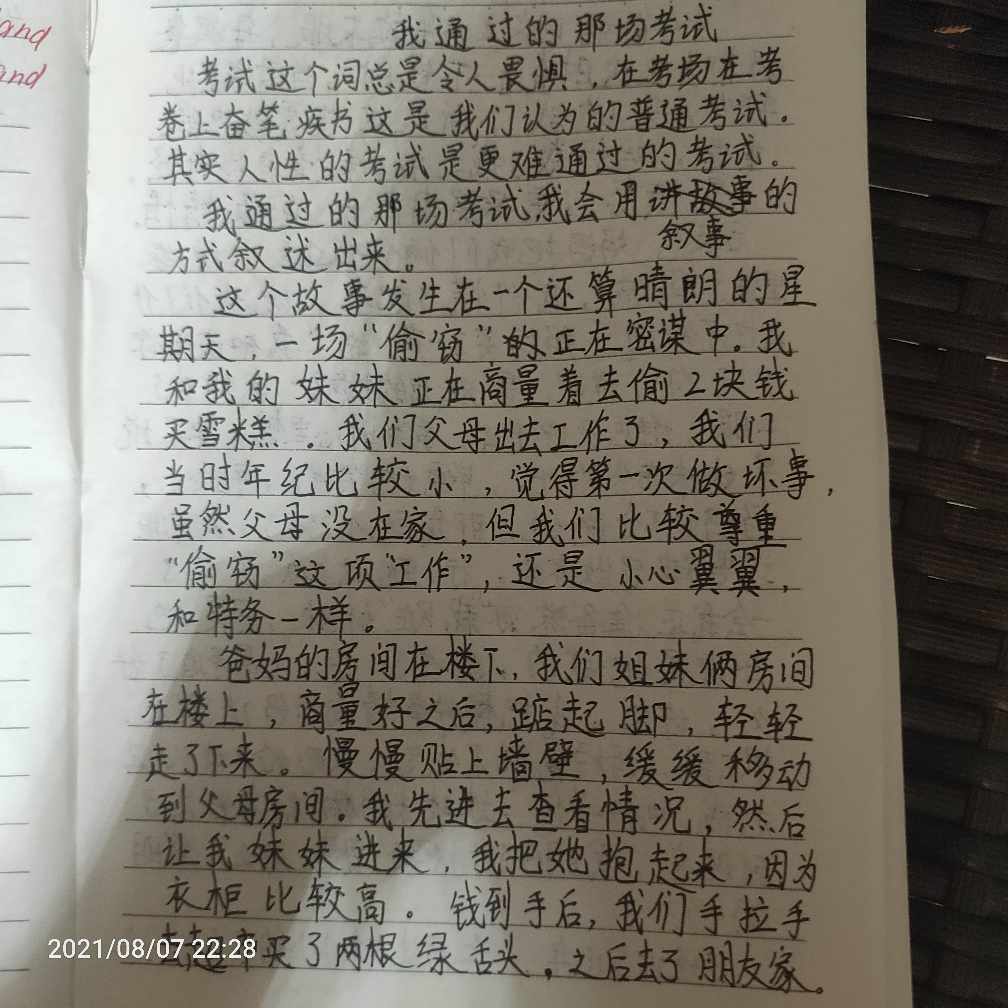 and
and
我通过的那场考试
考试这个词总是令人畏惧，在考场在考
卷上奋笔疾书这是我们认为的普通考试。
其实人性的考试是更难通过的考试。
我通过的那场考试我会用讲故事的
叙事
方式叙述出来。
这个故事发生在一个还算晴朗的星
期天，一场“偷窃”的正在密谋中。我
和我的妹妹正在商量着去偷2块钱
买雪糕。我们父母出去工作了，我们
当时年纪比较小，觉得第一次做坏事，
虽然父母没在家，但我们比较尊重
“偷窃”这项“工作”，还是小心翼翼，
和特务一样。
爸妈的房间在楼下，我们姐妹俩房间
在楼上，商量好之后，踮起脚，轻轻
走了下来。慢慢贴上墙壁，缓缓移动
到父母房间。我先进去查看情况，然后
让我妹妹进来，我把她抱起来，因为
衣柜比较高。钱到手后，我们手拉手
去超市买了两根绿舌头，之后去了朋友家。
2021/08/07 22:28